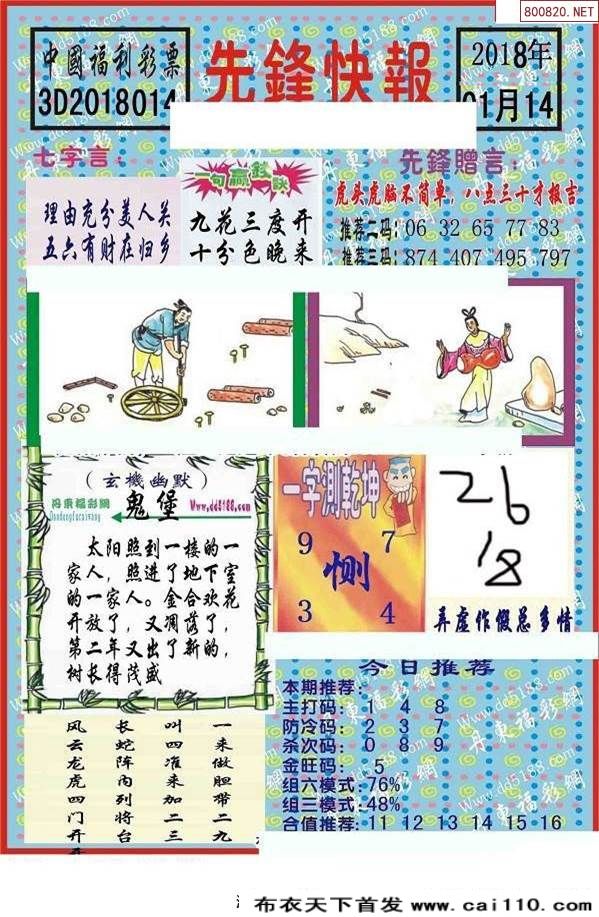 800820.NET
中國福利彩票
3D2018014
先鋒快報
2018年
01月14
七字言：
理由充分美人关
五六有财在归乡
一句赢钱诀
九花三度开
十分色晚来
先鋒贈言：
虎头虎脑不简单，八点三十才报吉
推荐二码：06 32 65 77 83
推荐三码：874 407 495 797
（玄機幽默）
丹東福彩網
Dandongfucaiwang
鬼堡
Www.dd5188.com
太阳照到一楼的一
家人，照进了地下室
的一家人。金合欢花
开放了，又凋落了，
第二年又出了新的，
树长得茂盛
一字測乾坤
9 7
恻
3 4
26
18
弄虚作假总多情
今日推荐
本期推荐：
主打码： 1 4 8
防冷码： 2 3 7
杀次码： 0 8 9
金旺码： 5
组六模式：76%
组三模式：48%
合值推荐：11 12 13 14 15 16
一来做胆带二九
叫四准来加二三
长蛇阵内列将台
风云龙虎四门开
布衣天下首发 www.cai110.com